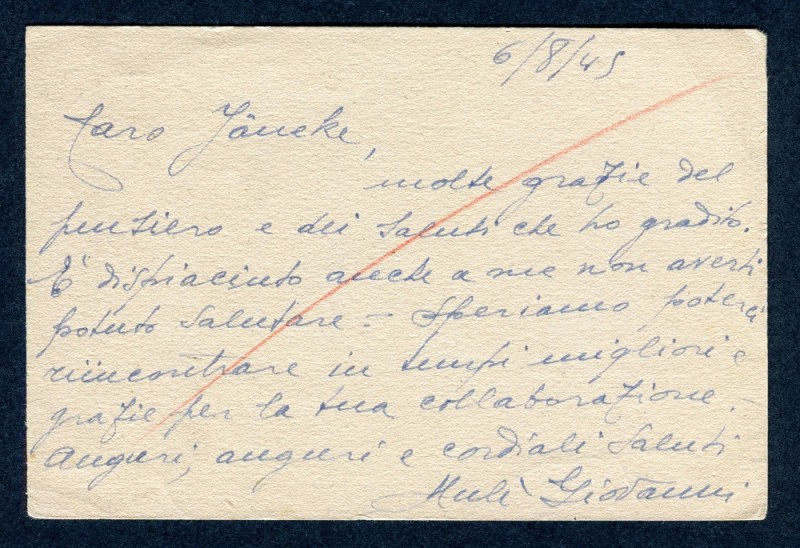 6/8/45
Caro Jäneke,
molte grazie del
pensiero e dei saluti che ho gradito.
E' dispiaciuto anche a me non averti
potuto salutare - Speriamo poterci
rincontrare in tempi migliori e
grazie per la tua collaborazione. -
Auguri, auguri e cordiali saluti
Mulè Giovanni